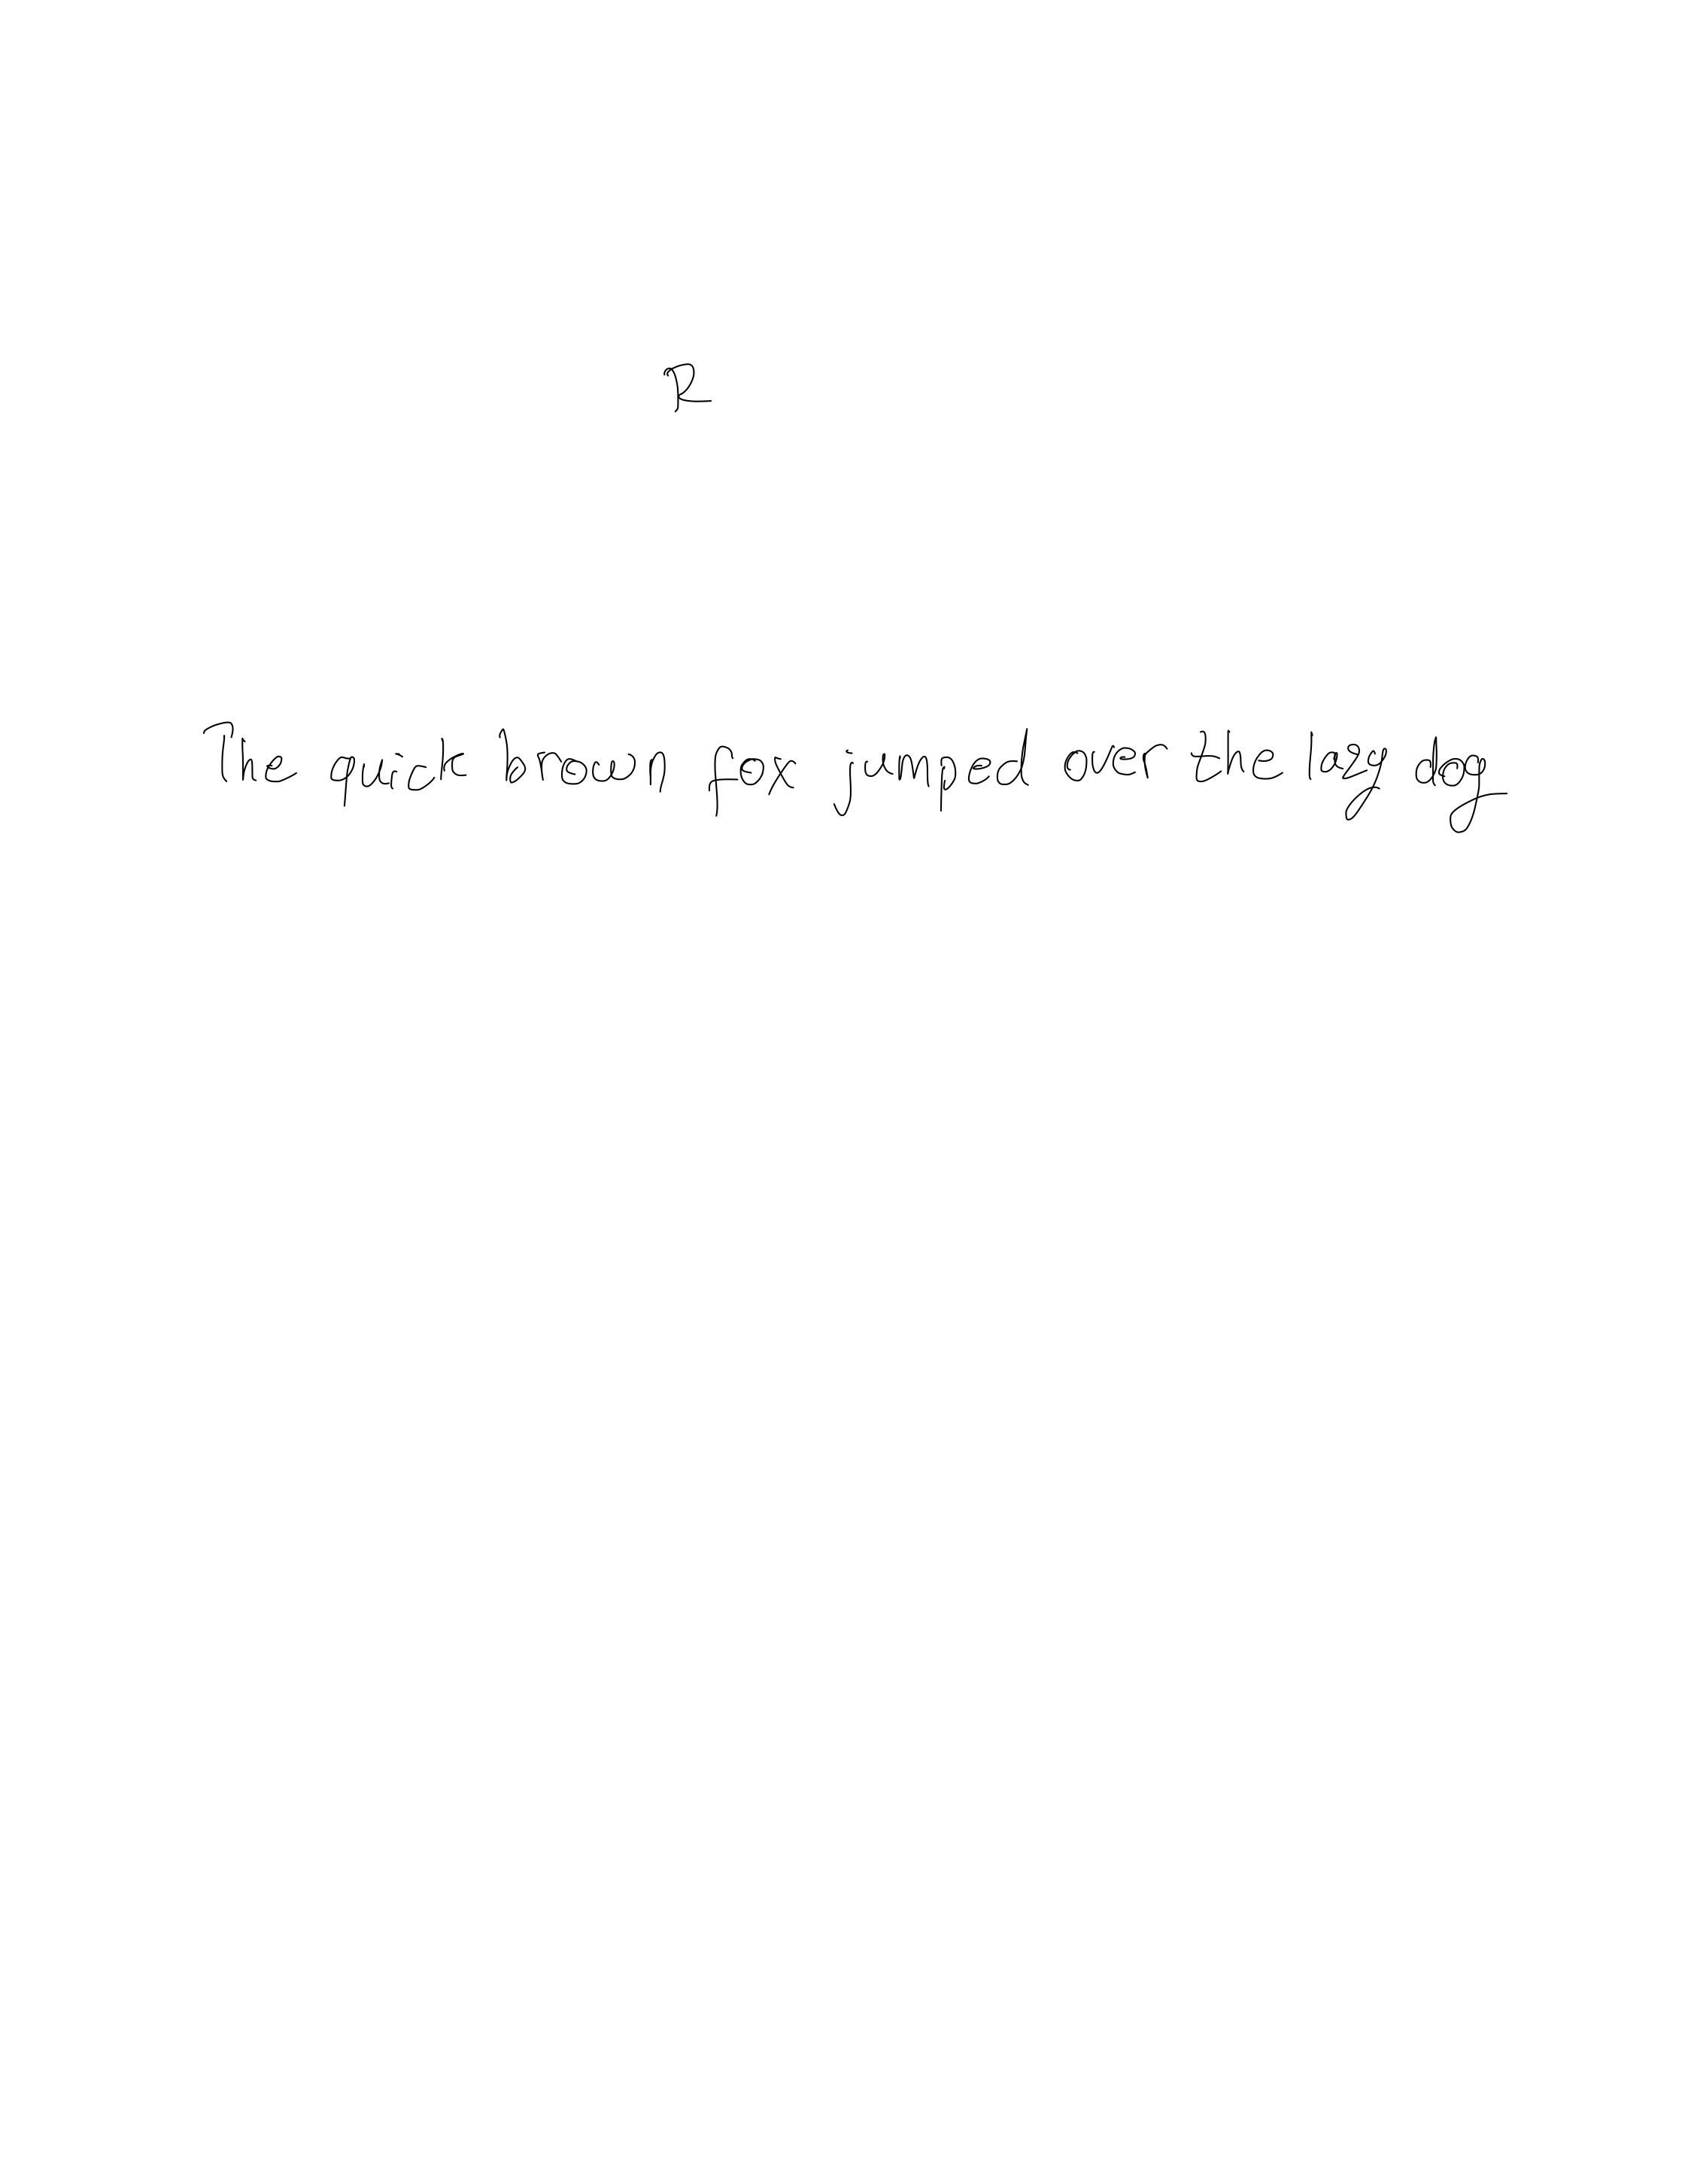 R
The quick brown fox jumped over the lazy dog